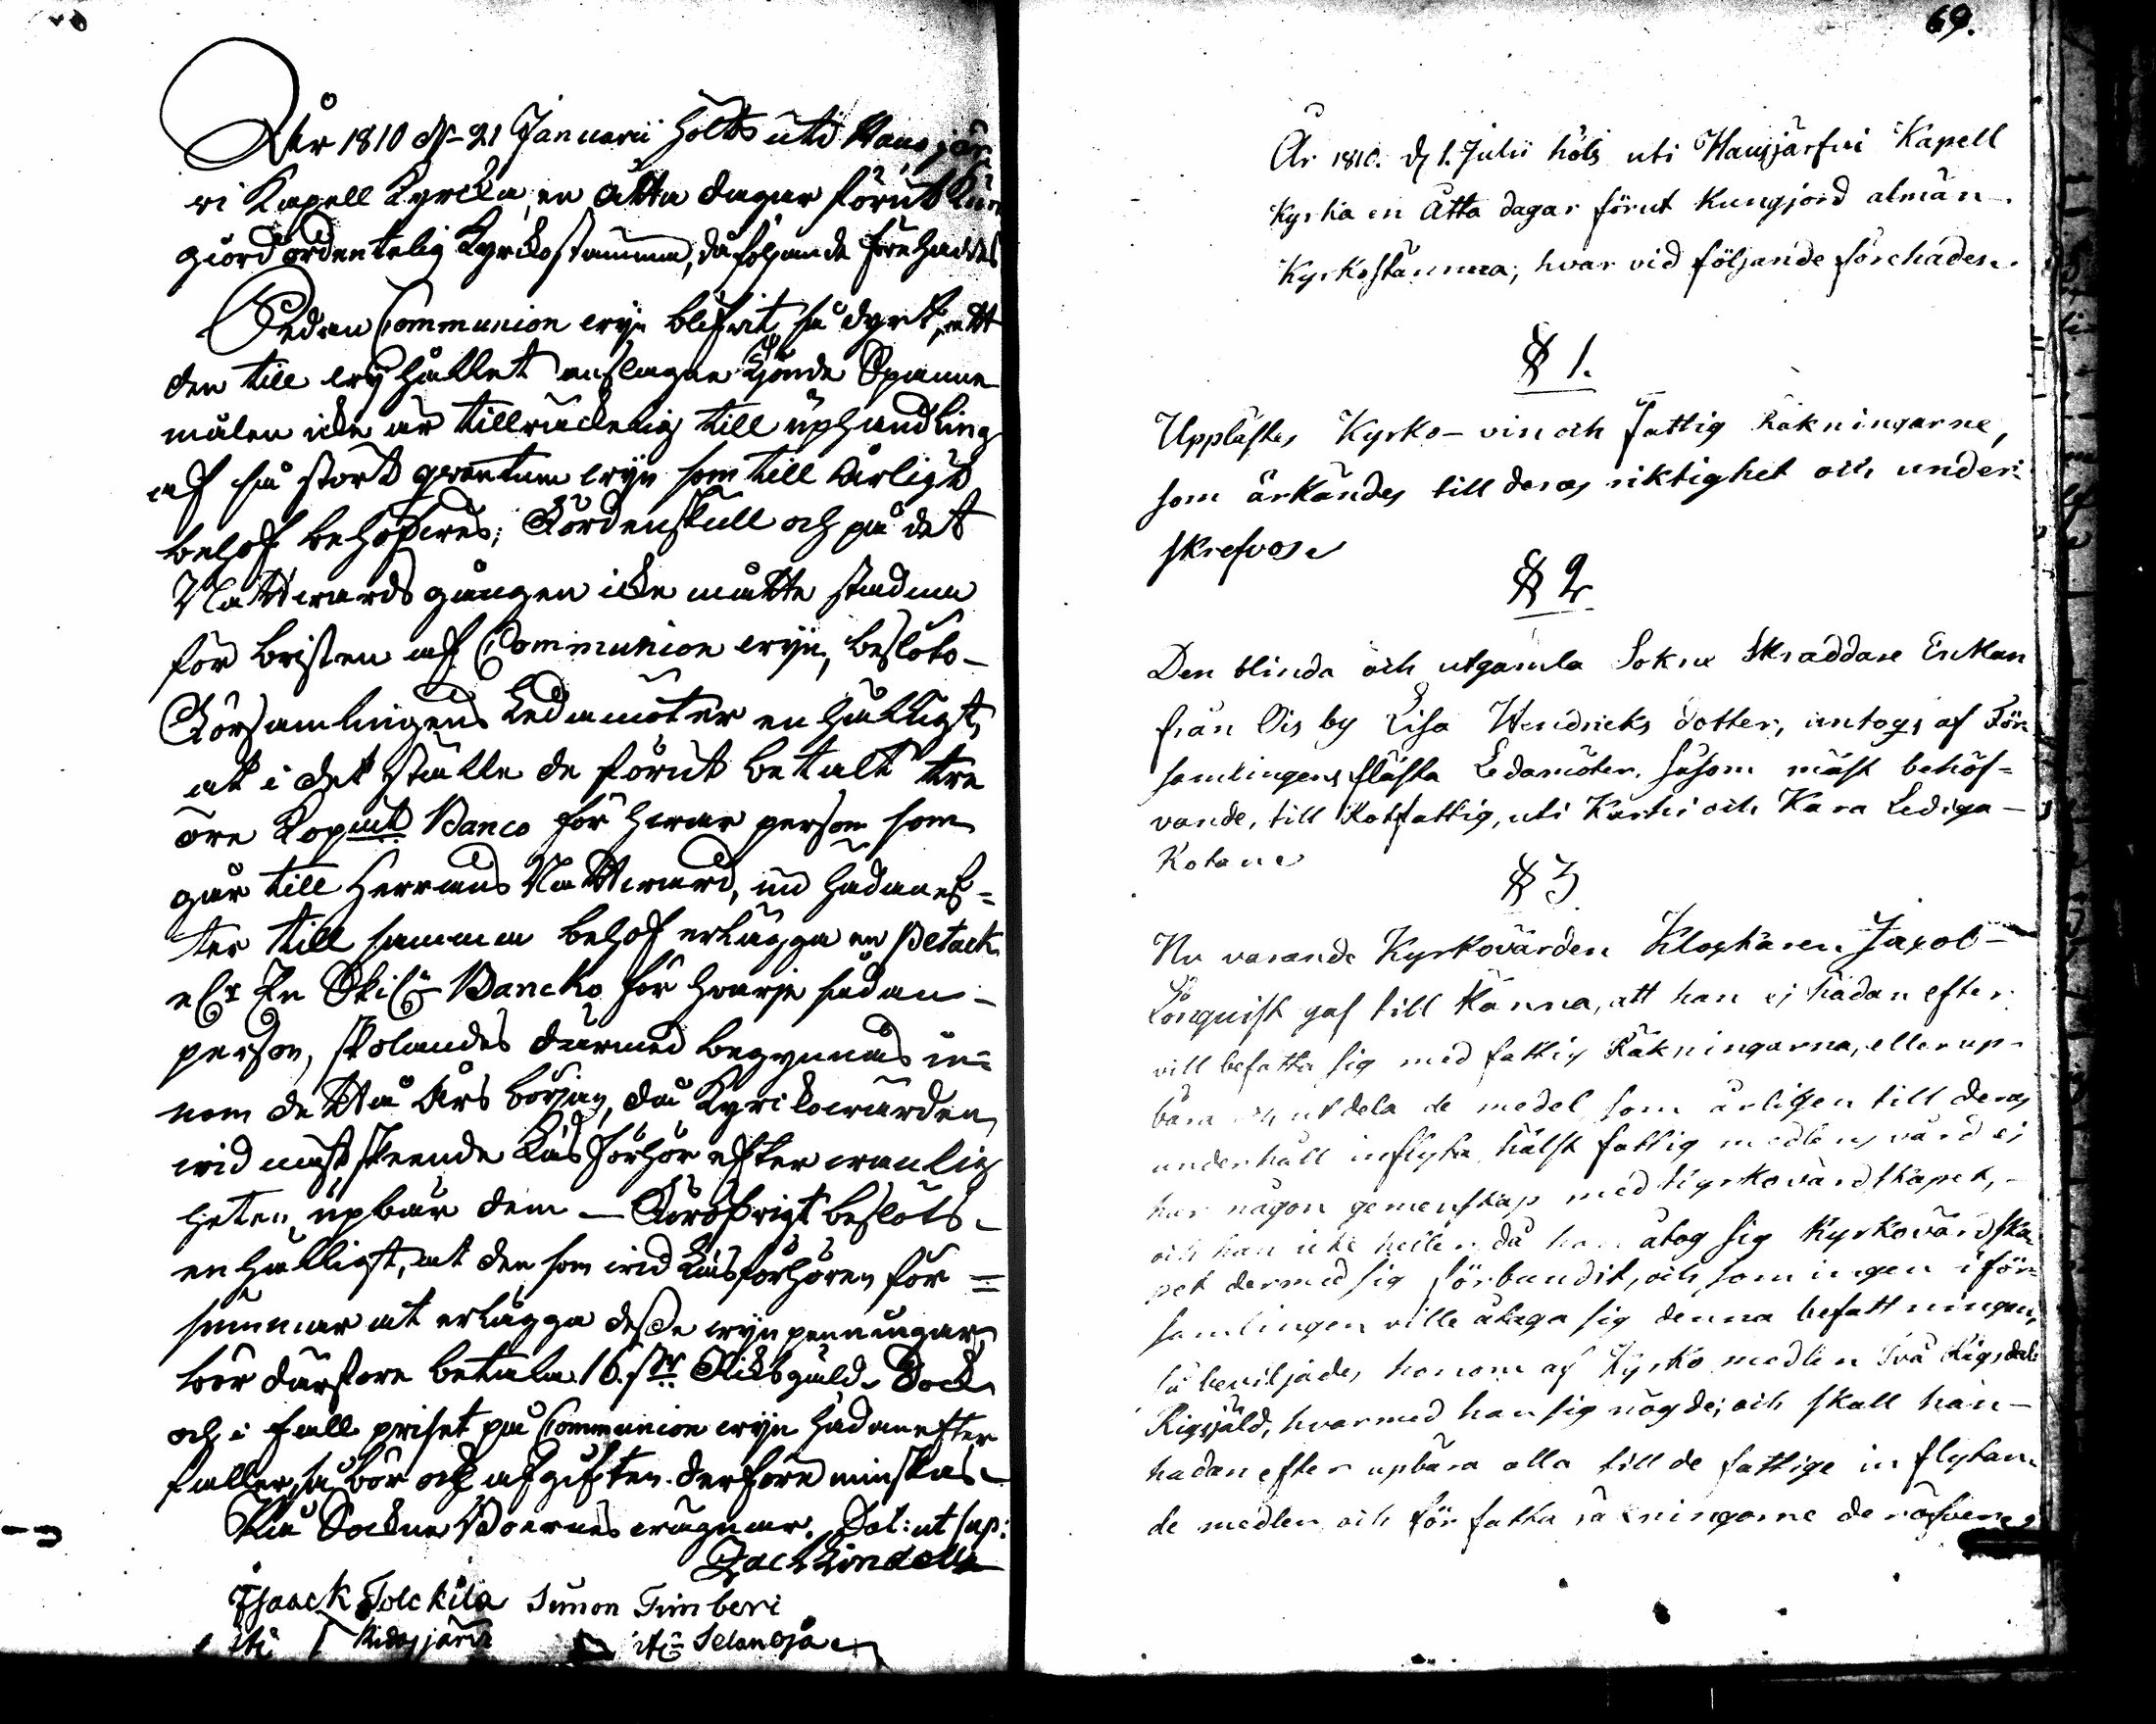 År 1810 d. 21 Januarii hölts uti Hausjär
vi Kapell Kyrcka, en åtta dagar förut kun
giord ordentelig Kyrckostämma, då följande förehades
Sedan Communion wijn blifwit så dyrt, att
den till wij hållet anslagne Tjonde Spanne
målen icke är tillräckelig till uphandling
af så stort qvantum wijn som till årligt
behof behöfwes; Fördenskull och på det
Nattwards gången icke måtte stadna
för bristen af Communion wijn, beslöts
Församlingens Ledamöter enhälligt,
att i det ställe de förut betalt tre
öre Kopmt Banco för hwar person som
går till Herrans Nattward, nu hädanef=
ter till samma behof erlägga en Petack
elr En Skil. Bancko för hvarje sådan
person, skolandes därmed begynnas in=
nom detta års början, då Kyrckowärden
wid näst skeende Läsförhör efter wanlig
heten upbär dem – Föröfrigt beslöts
enhälligt, at den som wid Läsförhören för=
summar at erlägga desse wijnpenningar
bör därföre betala 16 sk. Riksgäld. Dock
och i fall priset på Communion wijn hädanefter
faller, så bör ock afgiften derföre minskas
På Sockne Boernes wägnar. Dat: ut sup:
Zach Lindell
Isaack Tolckila Simon Timberi
uti Ridasjärvi uti Selänoja
69.
År 1810. d 1. Julii höls uti Hausjärfvi Kapell
Kyrka en Åtta dagar förut Kungjord almän
Kyrkostämma, hvar vid följande förehades.
§ 1.
Upplästes Kyrko- vin och fattig Räkningarne,
som ärkändes till deras riktighet och under-
skrefvos
§ 2
Den blinda och utgamla Sokne Skraddare Enkan
från Ois by Lisa Hendricks dotter, intogs af För
samlingens flästa Ledamöter, såsom mäst behöf=
vande, till Rotfattig, uti Karhi och Kara Lediga
Rotane
§ 3
Nu varande Kyrkovärden Klockaren Jacob
Lönquist gaf till känna, att han ej hädan efter
vill befatta sig med fattig Räkningarna, eller up-
bära och utdela de medel som årligen till deras
underhåll inflyta, hälst fattig medlens vård ej
har någon gemenskap med kyrkovärdskapet,
och han icke heller då han åtog sig Kyrkovärdska
pet dermed sig förbundit, och som ingen i för
samlingen ville åtaga sig denna befattningen,
så beviljades honom af Kyrko medlen Två Rigsdal
Rigsjäld, hvarmed han sig nögde; och skall han
hädan efter upbära alla till de fattige inflytan
de medlen och författa räkningarne deröfver